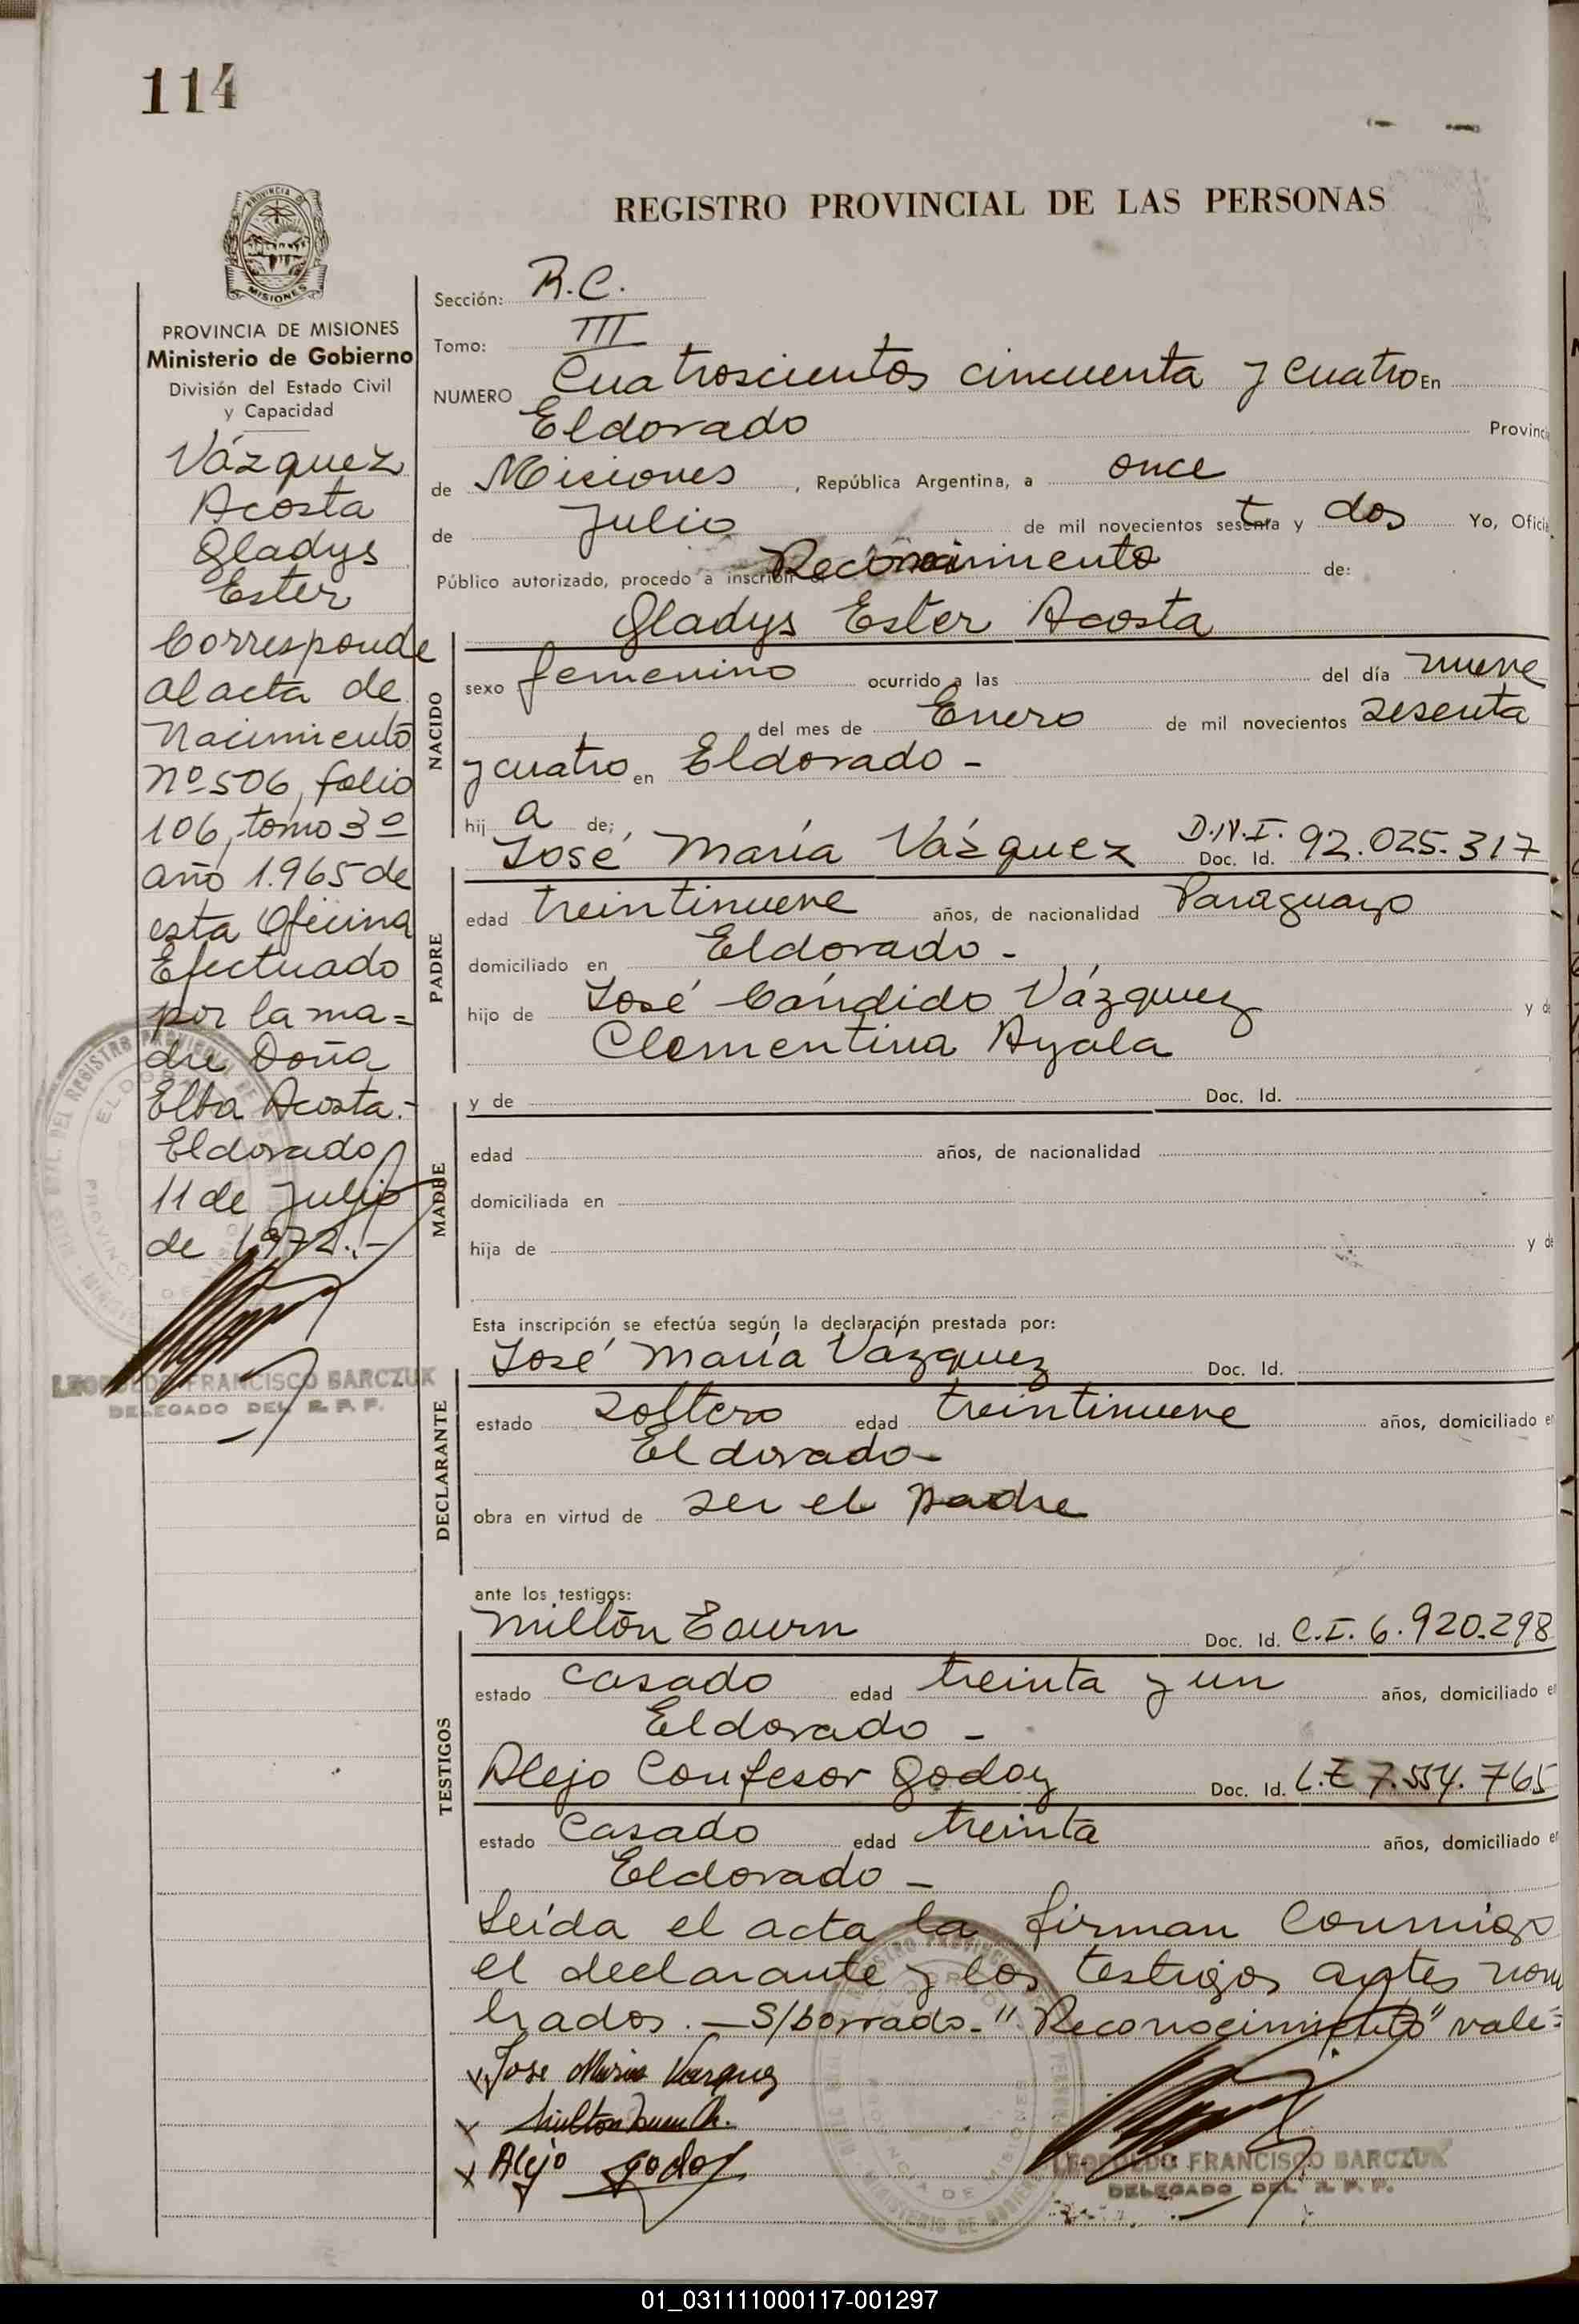 114
REGISTRO PROVINCIAL DE LAS PERSONAS
PROVINCIA DE MISIONES
Ministerio de Gobierno
División del Estado Civil
y Capacidad
Vázquez
Acosta
Gladys
Ester
Corresponde
al acta de
Nacimiento
Nº 506, folio
106, tomo 3º
año 1.965 de
esta Oficina
Efectuado
por la ma=
dre Doña
Elba Acosta.-
Eldorado
11 de Julio
de 1972.-
LEOPOLDO FRANCISCO BARCZUK
DELEGADO DEL R. P. P.
Sección: R.C.
Tomo: III
NUMERO Cuatroscientos cincuenta y cuatro En
Eldorado Provinci
de Misiones, República Argentina, a once
de Julio de mil novecientos sesenta y dos Yo, Ofici
Público autorizado, procedo a inscribir Reconocimiento de:
Gladys Ester Acosta
NACIDO
sexo femenino ocurrido a las del día nueve
del mes de Enero de mil novecientos sesenta
y cuatro en Eldorado -
hij a de;
José María Vázquez D.N.I. Doc. Id. 92.025.317
PADRE
edad treintinueve años, de nacionalidad Paraguayo
domiciliado en Eldorado -
hijo de José Cándido Vázquez y d
Clementina Ayala
MADRE
y de Doc. Id.
edad años, de nacionalidad
domiciliada en
hija de y d
Esta inscripción se efectúa según la declaración prestada por:
José María Vázquez Doc. Id.
DECLARANTE
estado soltero edad treintinueve años, domiciliado e
Eldorado -
obra en virtud de ser el padre
ante los testigos:
Doc. Id. C.I. 6.920.298
TESTIGOS
estado casado edad treinta y un años, domiciliado e
Eldorado -
Alejo Confesor Godoy Doc. Id. L.E 7.554.765
estado Casado edad treinta años, domiciliado e
Eldorado -
Leída el acta la firman conmigo
el declarante y los testigos antes nom
brados. — S/borrado - "Reconocimiento" vale=
x Jose Maria Vazquez
x
x Alejo godoy
LEOPOLDO FRANCISCO BARCZUK
DELEGADO DEL R. P. P.
01_031111000117-001297